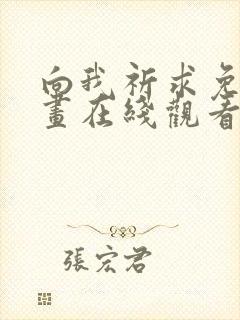 向我祈求免
畫在綫觀看
張宏君